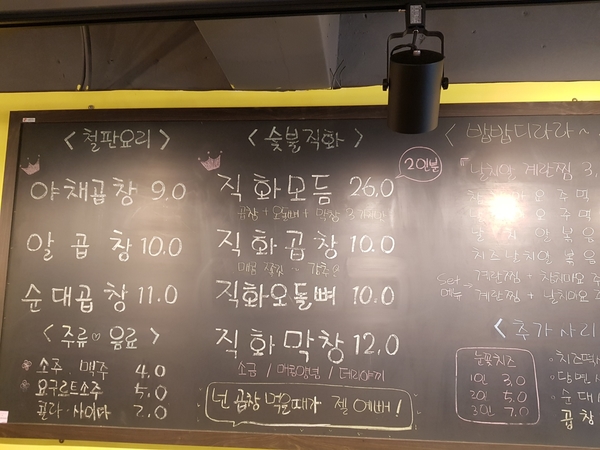 < 철판요리 >
야채곱창 9.0
알곱창 10.0
순대곱창 11.0
< 주류♡음료 >
소주 · 맥주 4.0
요구르트소주 5.0
콜라 · 사이다 2.0
< 숯불직화 >
2인분
직화모듬 26.0
곱창 + 오돌뼈 + 막창 3가지
직화곱창 10.0
직화오돌뼈 10.0
직화막창 12.0
소금 / 매콤양념 / 데리야끼
넌 곱창 먹을때가 젤 예뻐!
< 밥밥디라라~
날치알 계란찜 3.
날치알 볶음
치즈날치알 볶음
Set 메뉴 →
계란찜 + 참치마요 주
계란찜 + 날치마요
< 추가사리
눈꽃치즈
1인 3.0
2인 5.0
3인 7.0
· 치즈떡사
· 당면사
· 순대
곱창